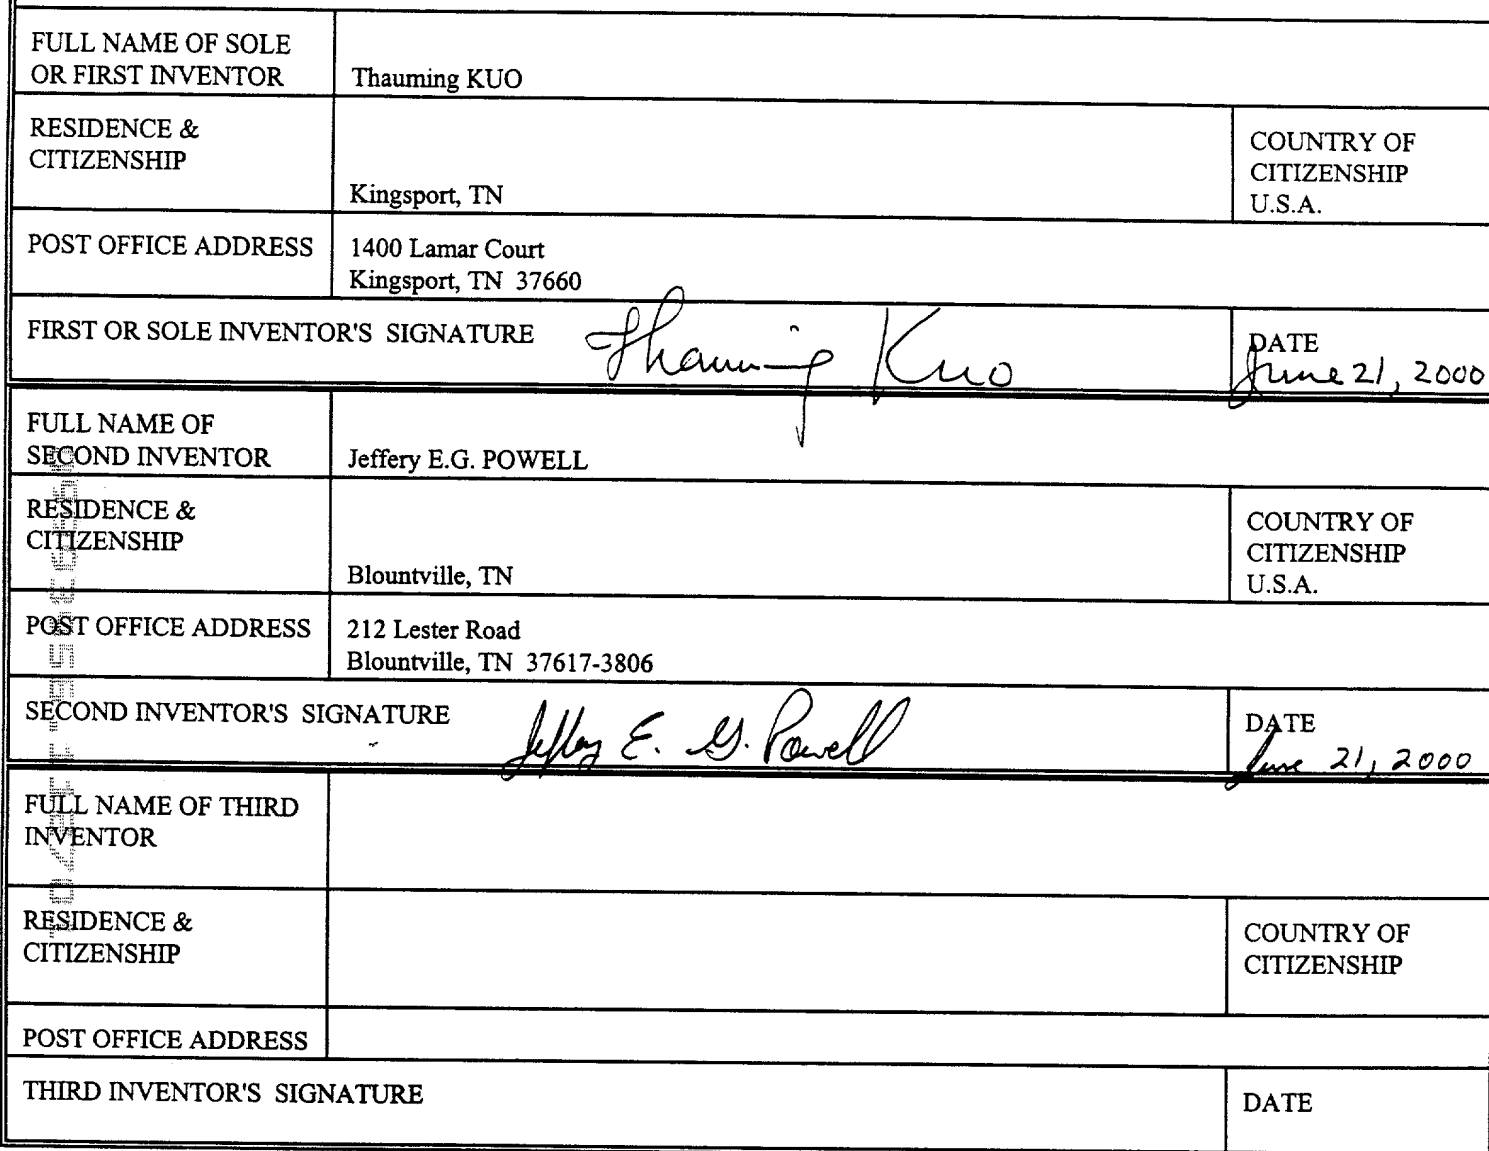 FULL NAME OF SOLE
OR FIRST INVENTOR
Thauming KUO
RESIDENCE &
CITIZENSHIP
Kingsport, TN
COUNTRY OF
CITIZENSHIP
U.S.A.
POST OFFICE ADDRESS
1400 Lamar Court
Kingsport, TN 37660
FIRST OR SOLE INVENTOR'S SIGNATURE
Thauming Kuo
DATE
June 21, 2000
FULL NAME OF
SECOND INVENTOR
Jeffery E.G. POWELL
RESIDENCE &
CITIZENSHIP
Blountville, TN
COUNTRY OF
CITIZENSHIP
U.S.A.
POST OFFICE ADDRESS
212 Lester Road
Blountville, TN 37617-3806
SECOND INVENTOR'S SIGNATURE
Jeffery E. G. Powell
DATE
June 21, 2000
FULL NAME OF THIRD
INVENTOR
RESIDENCE &
CITIZENSHIP
COUNTRY OF
CITIZENSHIP
POST OFFICE ADDRESS
THIRD INVENTOR'S SIGNATURE
DATE